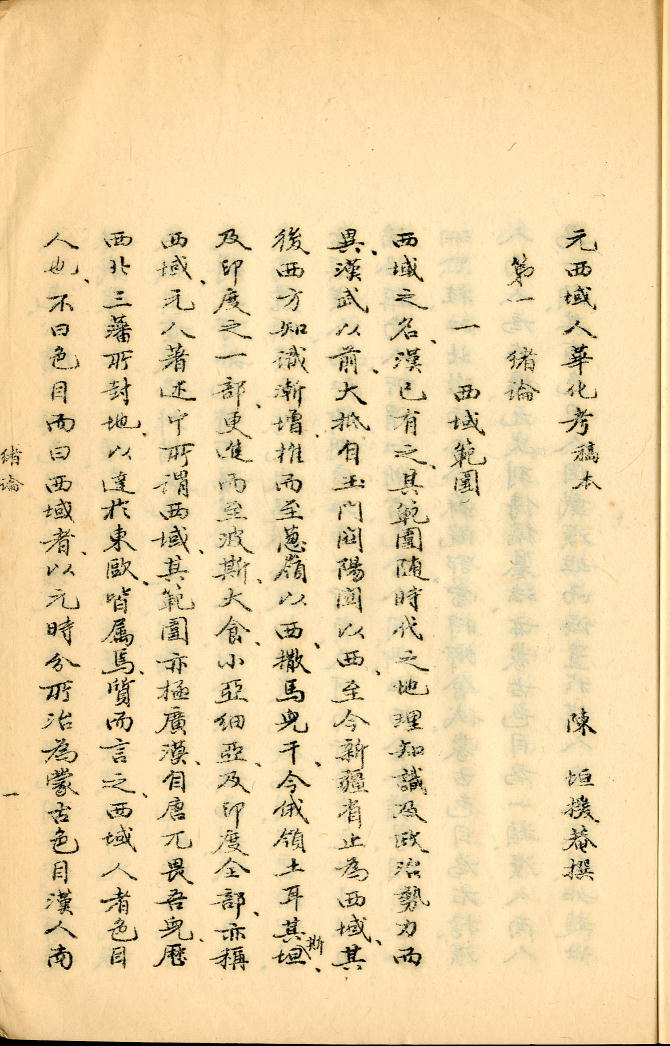 元西域人華化考稿本　陳垣援菴撰
第一　緒論
一　西域範圍
西域之名、漢已有之、其範圍随時代之地理知識及政治勢力而
異、漢武以前、大抵自玉門關陽關以西、至今新疆省止為西域、其
後西方知識漸增、推而至葱嶺以西、撒馬兒干、今俄領土耳其斯坦、
及印度之一部、更進而至波斯、大食、小亞細亞、及印度全部、亦稱
西域、元人著述中所謂西域、其範圍亦極廣漠、自唐兀畏吾兒、歷
西北三藩所封地、以達於東歐、皆属焉、質而言之、西域人者色目
人也、不曰色目而曰西域者、以元時分所治為蒙古色目漢人南
緒論
一